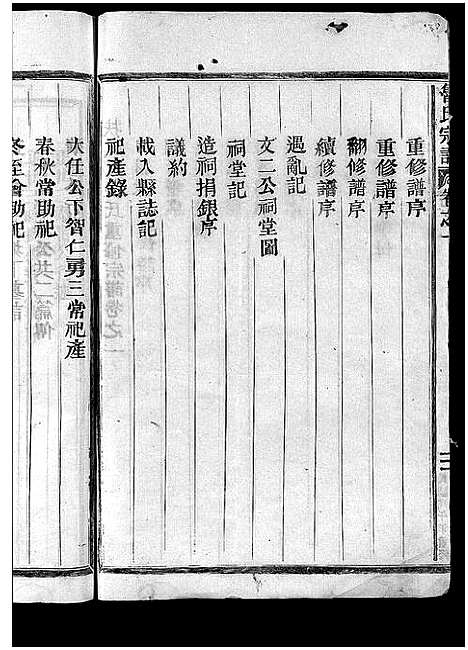 魯氏宗譜 卷之一
重修譜序
重修譜序
翻修譜序
續修譜序
遇亂記
文二公祠堂圖
祠堂記
造祠捐銀序
議約
載入縣誌記
祀產錄
大任公下智仁勇三常祀產
春秋常助祀
冬至會助祀